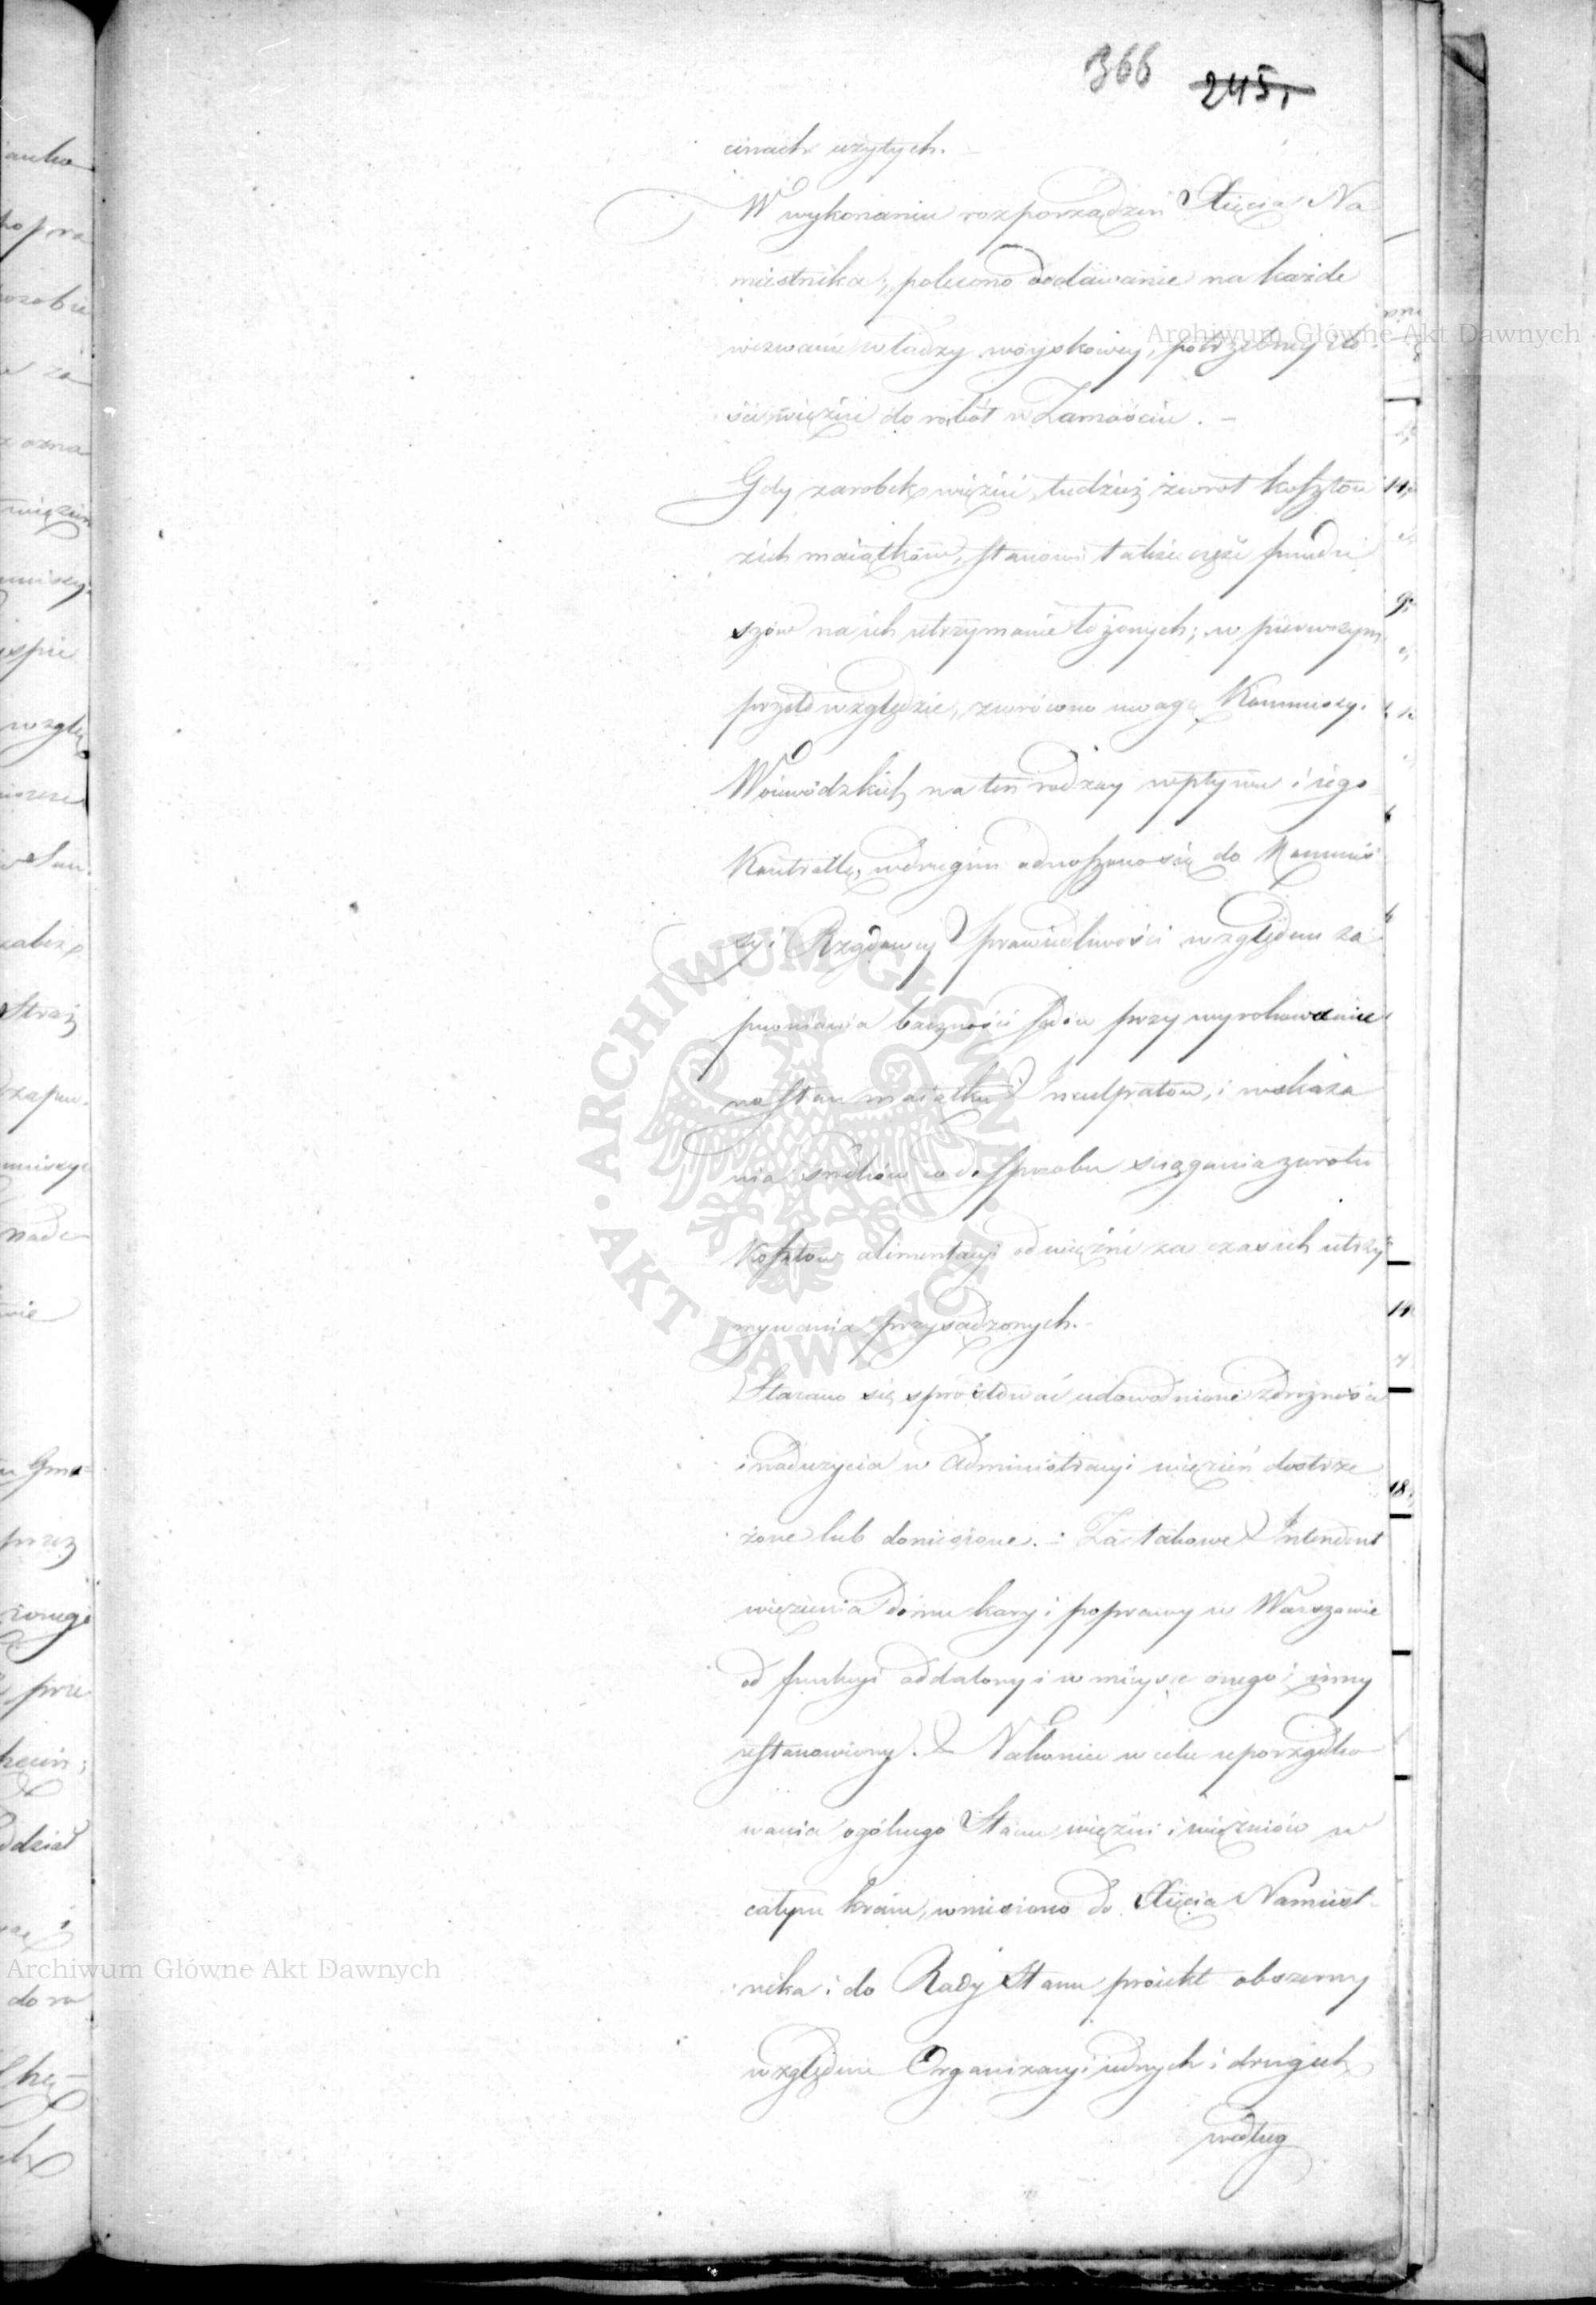 366 245,
cinach użytych. –
W wykonaniu rozporządzeń Xięcia Na
miestnika, polecono dodawanie na każde
wezwanie władzy woyskowey, potrzebney ilo-
ści więźni do robót w Zamościu. –
Gdy zarobek więźni, tudzież zwrot kosztow
z ich maiątków, stanowi także część fundu
szów na ich utrzymanie łożonych; w pierwszym
przedwzględzie, zwrócono uwagę Kommissyi
Woiewódzkich na ten rodzay wpływu i iego
Kontrollę, w drugim odnoszono się do Kommis
syi Rządowey Sprawiedliwości względem za
pewnienia baczności Sądów przy wyrokowaniu
na stan maiątku Inculpatow, i wskaza
nia srodków co do sposobu sciągania zwrotu
Kosztow alimentacyi od więźni za czas ich utrzy
mywania przysądzonych. –
Starano się sprostować udowodnione zdrożności
i nadużycia w Administracyi więzień dostrze
żone lub doniesione. – Za takowe Intendent
więzienia domu kary i poprawy w Warszawie
od funkcyi oddalony i w mieysce onego inny
ustanowiony. – Nakoniec w celu uporządko
wania ogólnego Stanu więzień i więźniów w
całym kraiu, wniesiono do Xięcia Namiest-
nika i do Rady Stanu proiekt obszerny
względem Organizacyi iednych i drugich
według
Archiwum Główne Akt Dawnych
ARCHIWUM GŁÓWNE AKT DAWNYCH
Archiwum Główne Akt Dawnych